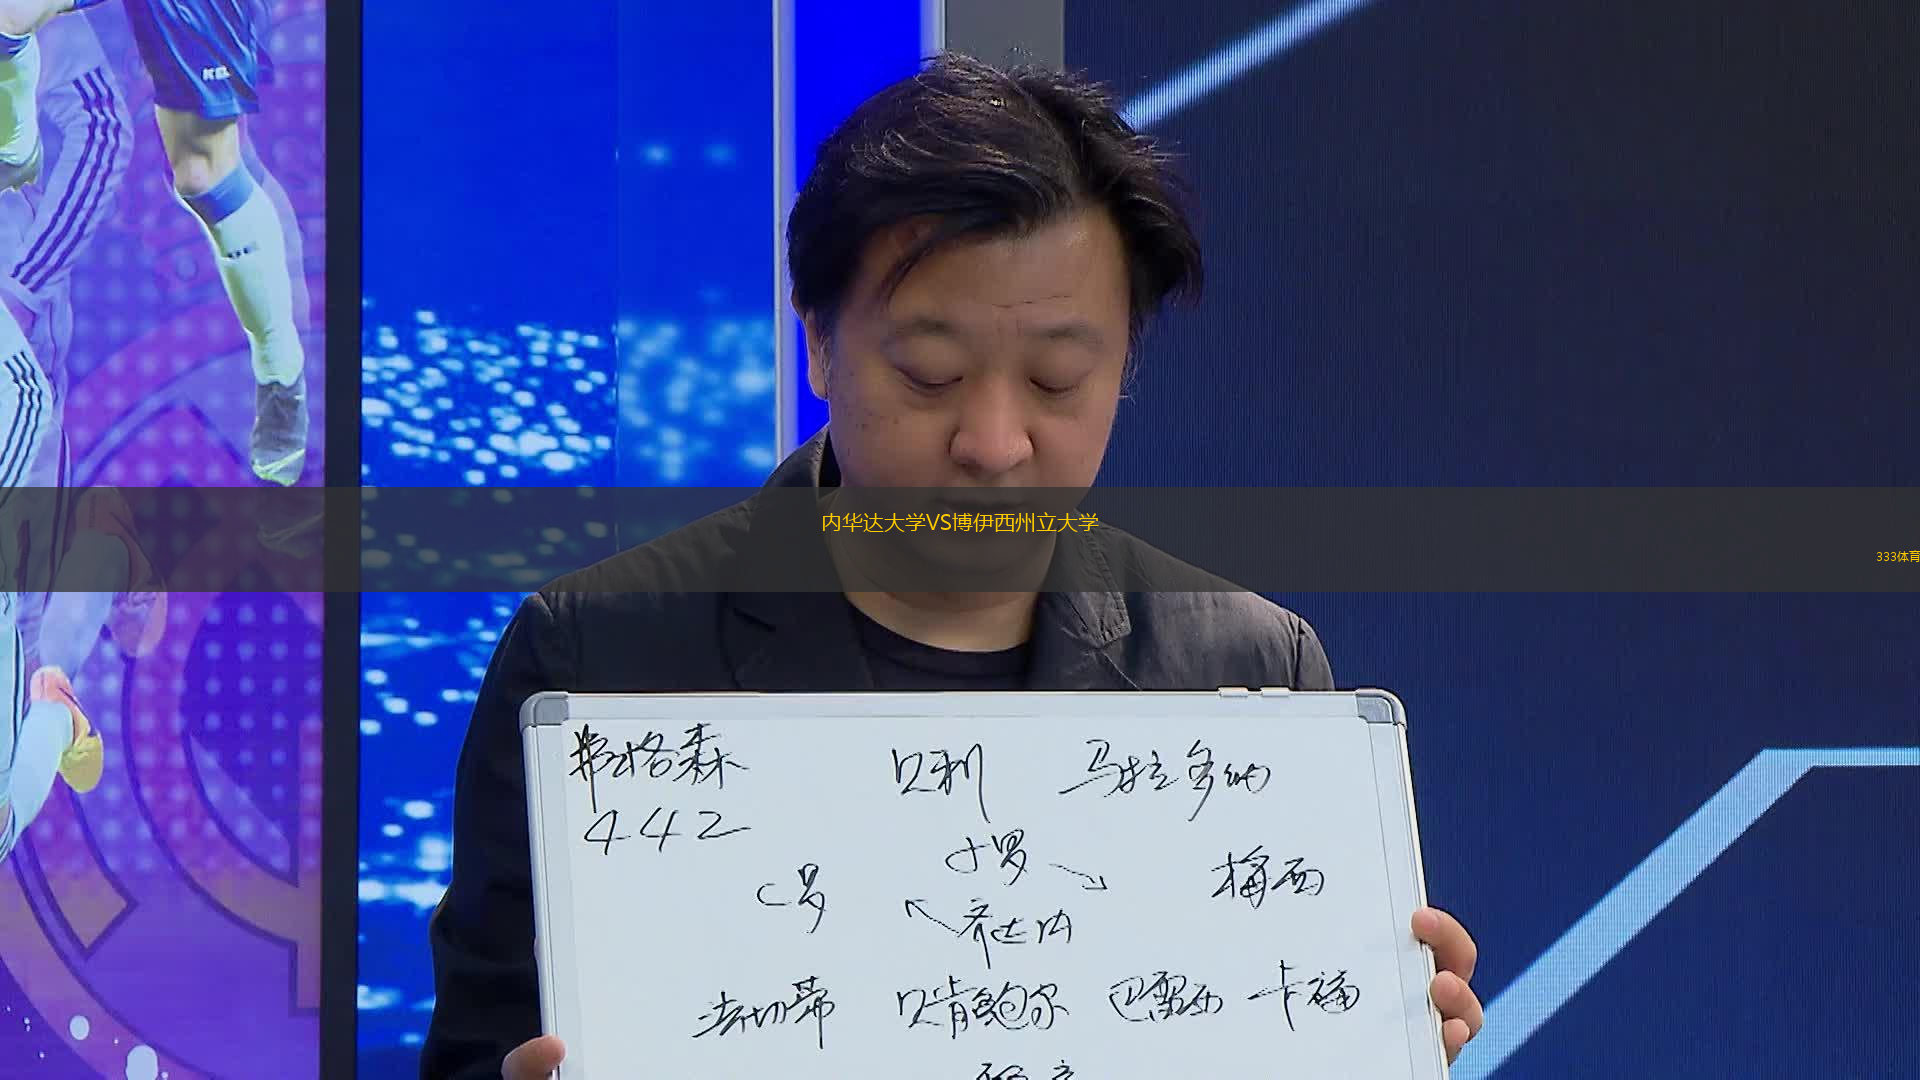 内华达大学VS博伊西州立大学
333体育
弗格森 贝利 马拉多纳
442
小罗
C罗 梅西
齐达内
法切蒂 贝肯鲍尔 巴雷西 卡福